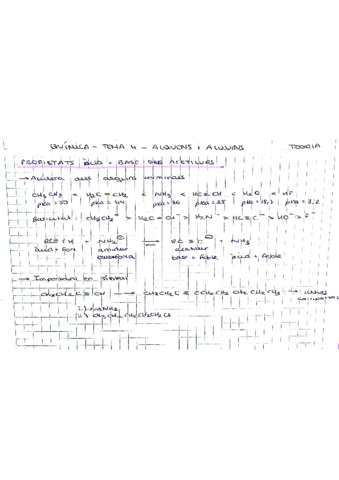 QUÍMICA - TEMA 4 - ALQUENS I ALQUINS TEORIA
PROPIETATS ÀCID - BASE DELS ACETILURS
→ Acidesa dels alquins terminals
CH3CH3 < H2C=CH2 < NH3 < HC≡CH < H2O < HF
pka = 50 pka = 44 pka = 36 pka = 25 pka = 15,7 pka = 3,2
Basicitat: CH3CH2⁻ > H2C=CH⁻ > H2N⁻ > HC≡C⁻ > HO⁻ > F⁻
RC≡CH + NH2⊖ ⇌ RC≡C⊖ + NH3
àcid + fort amidur acetilur
base + forta base + feble àcid + feble
→ Importància en síntesi
CH3CH2C≡CH → CH3CH2C≡CCH2CH2CH2CH2CH3 →
i) NaNH2
ii) CH3CH2CH2CH2CH2Cl